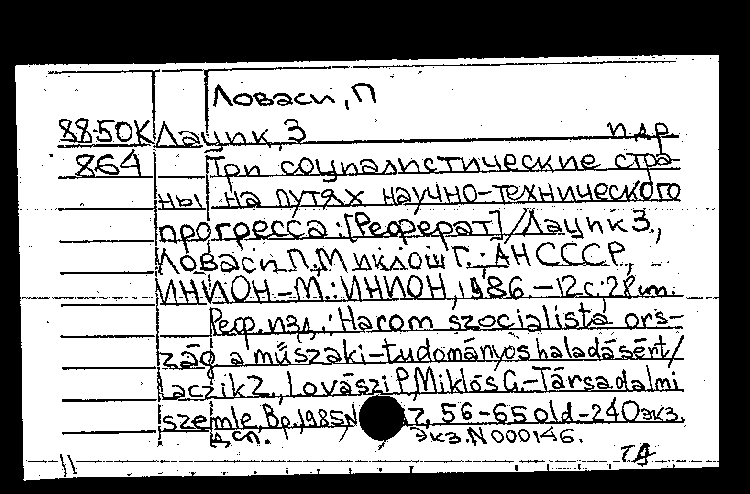 Ловаси, П
88-50К Лацик, З и др
864 Три социалистические стра-
ны на путях научно-технического
прогресса: [Реферат] / Лацик З.,
Ловаси П., Миклош Г.; АН СССР,
ИНИОН - М.: ИНИОН, 1986. - 12 с.; 28 cm.
Реф. изд.: Három szocialista ors-
zág a műszaki-tudományos haladásért /
Laczik Z., Lovászi P., Miklós G. - Társadalmi
szemle, Bp., 1985, N 12, 56-65 old - 240 экз.
Дсп. Экз. N 000146.